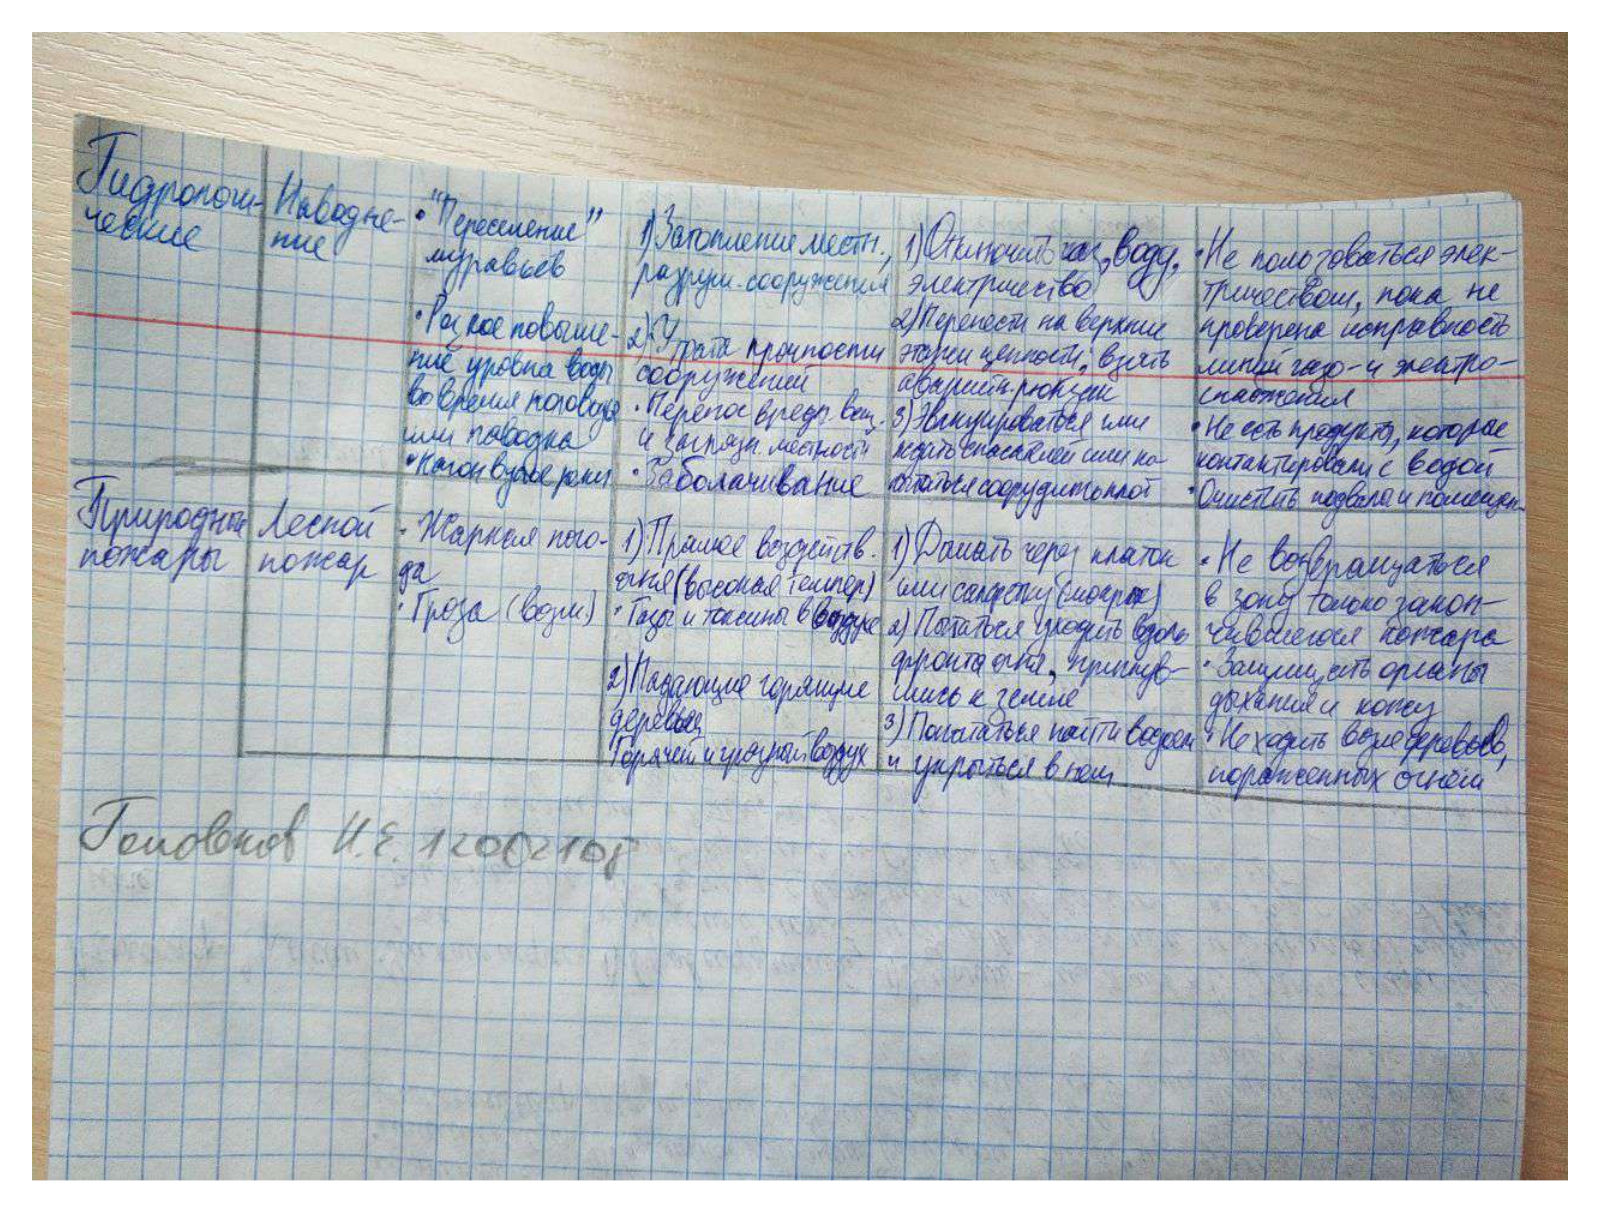 Гидрологи-
ческие
Наводне-
ние
• "Переселение"
муравьёв
• Резкое повыше-
ние уровня воды
во время половодья
или паводка
• Нагон в устье реки
1) Затопление местн.,
разруш. сооружения
2) • Утрата прочности
сооружений
• Перенос вредн. вещ.
и загрязн. местности
• Заболачивание
1) Отключить газ, воду,
электричество
2) Перенести на верхние
этажи ценности, взять
аварийн. рюкзак
3) Эвакуироваться или
ждать спасателей или по
пытаться соорудить плот
• Не пользоваться элек-
тричеством, пока не
проверена исправность
линий газо- и электро-
снабжения
• Не есть продукты, которые
контактировали с водой
• Очистить подвалы и помещен.
Природные
пожары
Лесной
пожар
• Жаркая пого-
да
• Гроза (возм.)
1) • Прямое воздейств.
огня (высокая темпер)
• Газы и токсины в воздухе
2) Падающие горящие
деревья
Горячий и грязный воздух
1) Дышать через платок
или салфетку (мокрые)
2) Пытаться уходить вдоль
фронта огня, пригнув-
шись к земле
3) Попытаться найти водоем
и укрыться в нем
• Не возвращаться
в зону только закон-
чившегося пожара
• Защищать органы
дыхания и кожу
• Не ходить возле деревьев,
пораженных огнем
И.Е.